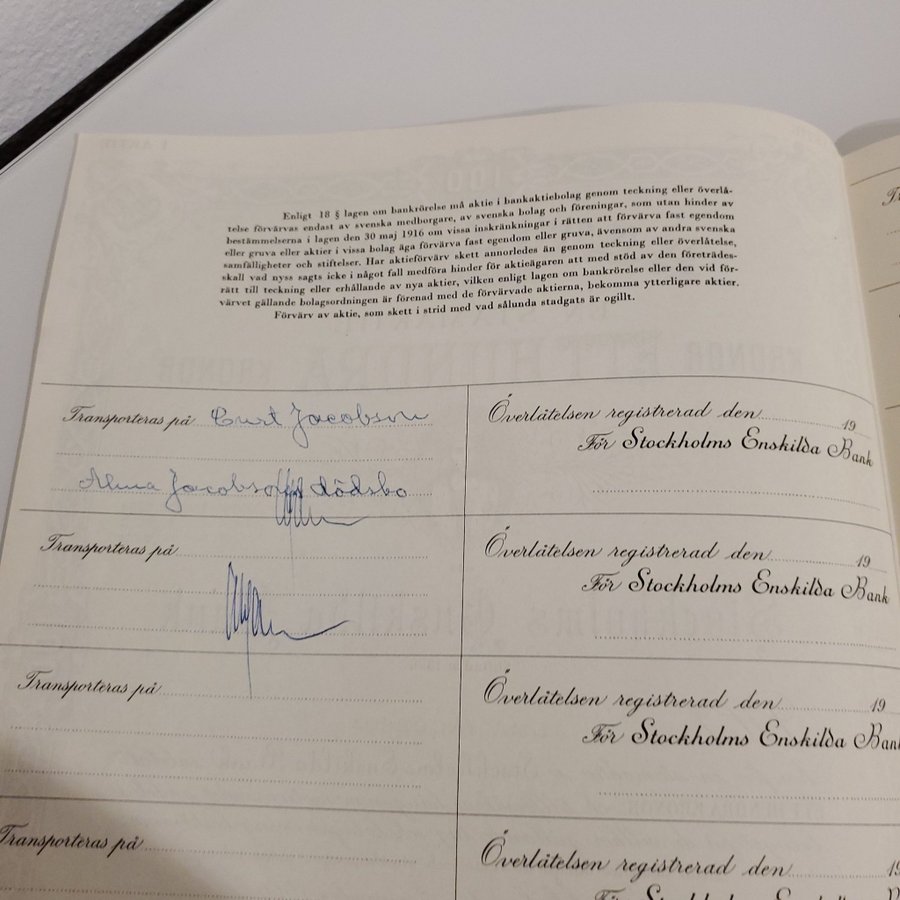 Enligt 18 § lagen om bankrörelse må aktie i bankaktiebolag genom teckning eller överlå-
telse förvärvas endast av svenska medborgare, av svenska bolag och föreningar, som utan hinder av
bestämmelserna i lagen den 30 maj 1916 om vissa inskränkningar i rätten att förvärva fast egendom
eller gruva eller aktier i vissa bolag äga förvärva fast egendom eller gruva, ävensom av andra svenska
samfälligheter och stiftelser. Har aktieförvärv skett annorledes än genom teckning eller överlåtelse,
skall vad nyss sagts icke i något fall medföra hinder för aktieägaren att med stöd av den företrädes-
rätt till teckning eller erhållande av nya aktier, vilken enligt lagen om bankrörelse eller den vid för-
värvet gällande bolagsordningen är förenad med de förvärvade aktierna, bekomma ytterligare aktier.
Förvärv av aktie, som skett i strid med vad sålunda stadgats är ogillt.
Transporteras på Curt Jacobson
Alma Jacobsons dödsbo
Överlåtelsen registrerad den 19
För Stockholms Enskilda Bank
Transporteras på
Överlåtelsen registrerad den 19
För Stockholms Enskilda Bank
Transporteras på
Överlåtelsen registrerad den 19
För Stockholms Enskilda Bank
Transporteras på
Överlåtelsen registrerad den 19
För Stockholms Enskilda Bank